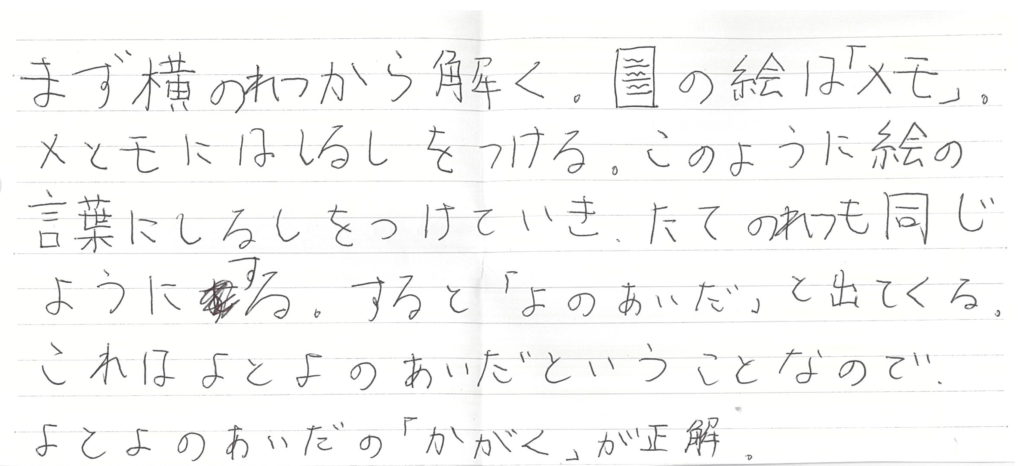 まず横のれつから解く。の絵は「メモ」。
メとモにはしるしをつける。このように絵の
言葉にしるしをつけていき、たてのれつも同じ
ようにする。すると「よのあいだ」と出てくる。
これはよとよのあいだということなので、
よとよのあいだの「かがく」が正解。